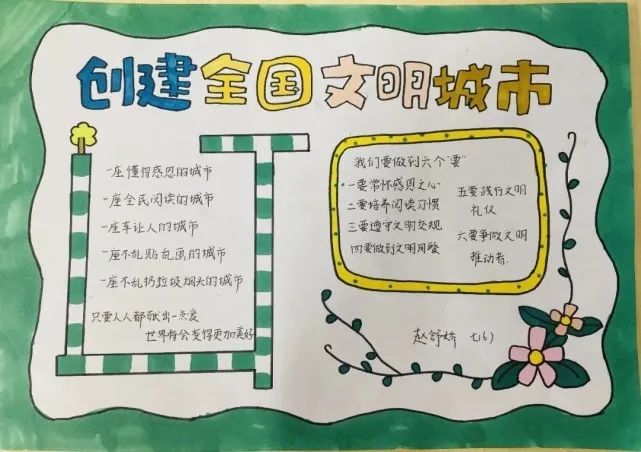 创建全国文明城市
一座懂得感恩的城市
一座全民阅读的城市
一座车让人的城市
一座不乱贴乱画的城市
一座不乱扔垃圾烟头的城市
只要人人都献出一点爱
世界将会变得更加美好
我们要做到六个"要"
一要常怀感恩之心
二要培养阅读习惯
三要遵守文明交规
四要做到文明用餐
五要践行文明
礼仪
六要争做文明
推动者.
赵舒娇 七(6)